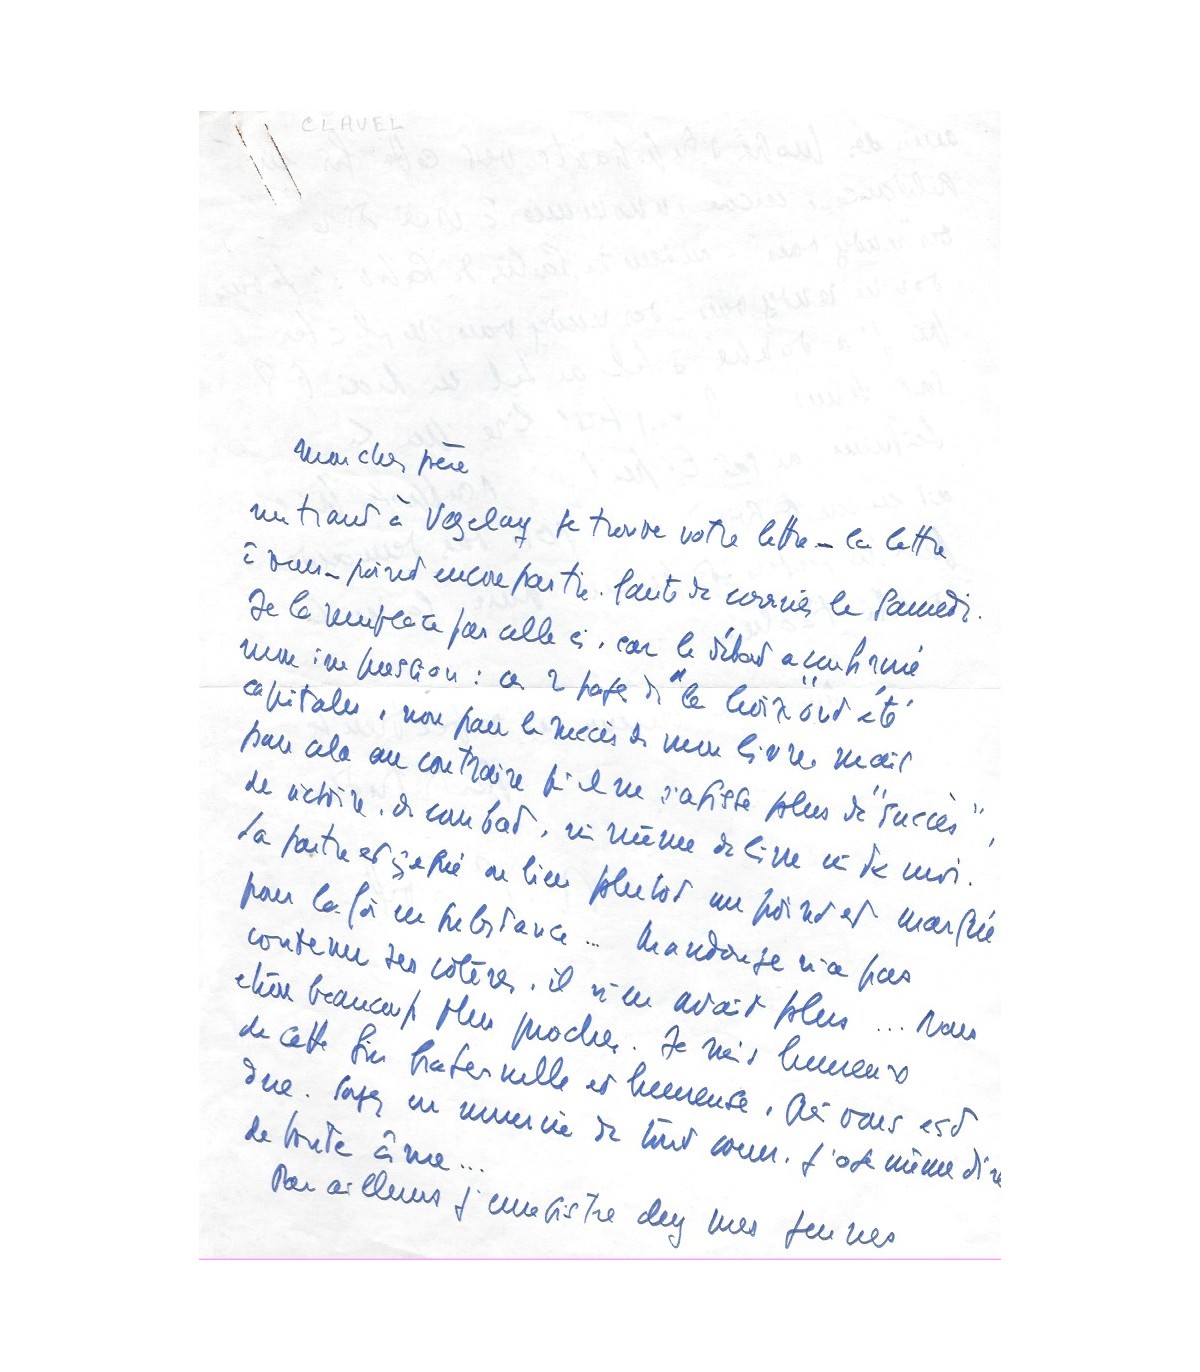 CLAVEL
Mon cher père
rentrant à Vézelay je trouve votre lettre _ la lettre
à vous _ point encore partie. faute de courrier le Samedi.
Je la remplace par celle ci, car le débat a confirmé
mon impression : ces 2 pages de "la Croix" ont été
capitales, non pour le succès de mon livre, mais
pour cela au contraire qu'il ne s'agisse plus de "succès",
de victoire, de combat, ni même de livre ni de moi.
La partie est gagnée ou bien plutôt un point est marqué
pour la foi en substance... Mandouze n'a pas
contenu ses colères, il n'en avait plus... Nous
étions beaucoup plus proches. Je suis heureux
de cette fin fraternelle et heureuse, qui vous est
due. Soyez en remercié de tout coeur. J'ose même dire
de toute âme...
Par ailleurs j'enregistre chez mes jeunes